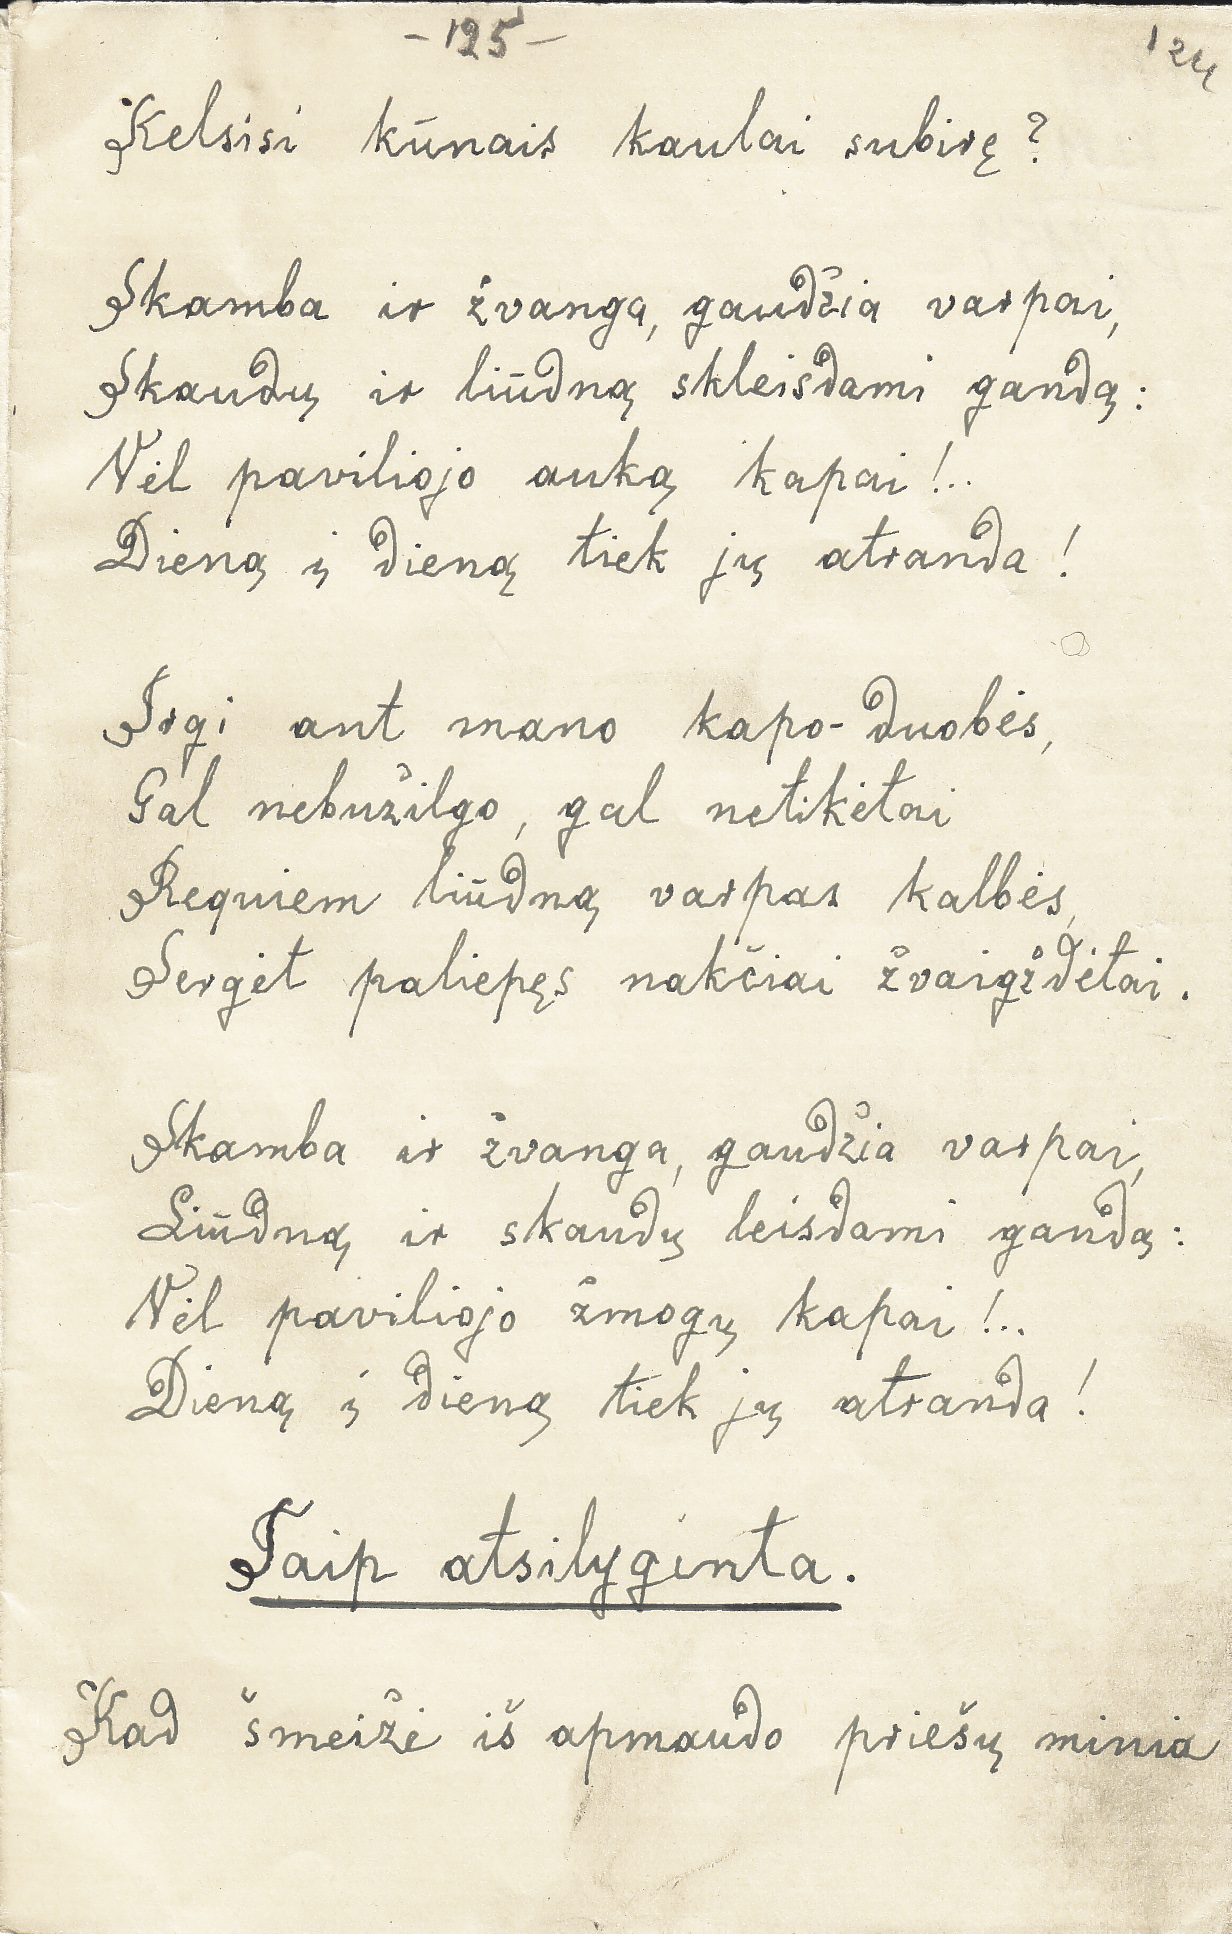 -125-
124
Kelsisi kūnais kaulai subirę?
Skamba ir žvanga, gaudžia varpai,
Skaudų ir liūdną skleisdami gandą:
Vėl paviliojo auką kapai!..
Dieną į dieną tiek jų atranda!
Irgi ant mano kapo-duobės,
Gal nebužilgo, gal netikėtai
Requiem liūdną varpas kalbės,
Sergėt paliepęs nakčiai žvaigždėtai.
Skamba ir žvanga, gaudžia varpai,
Liūdną ir skaudų leisdami gandą:
Vėl paviliojo žmogų kapai!..
Dieną į dieną tiek jų atranda!
Taip atsilyginta.
Kad šmeižė iš apmaudo priešų minia